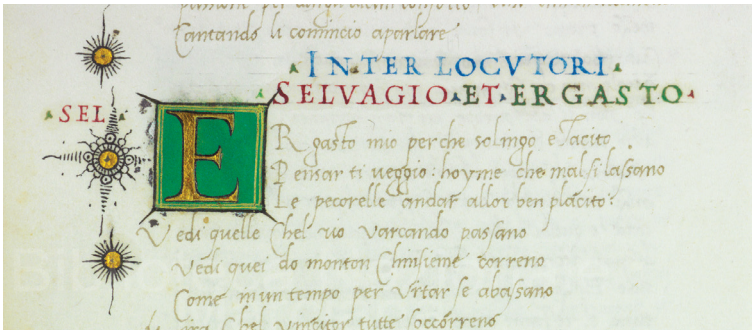 Cantando li comincio aparlare
INTERLOCVTORI
SELVAGIO ET ERGASTO
SEL
E
Rgasto mio perche solingo e Tacito
Pensar ti veggio: hoyme che mal si lassano
Le pecorelle andar allor ben placito:
Vedi quelle Chel rio varcando passano
Vedi quei do monton Chinsieme correno
Come in un tempo per vrtar se abassano
Chel vincitor tutte soccorreno